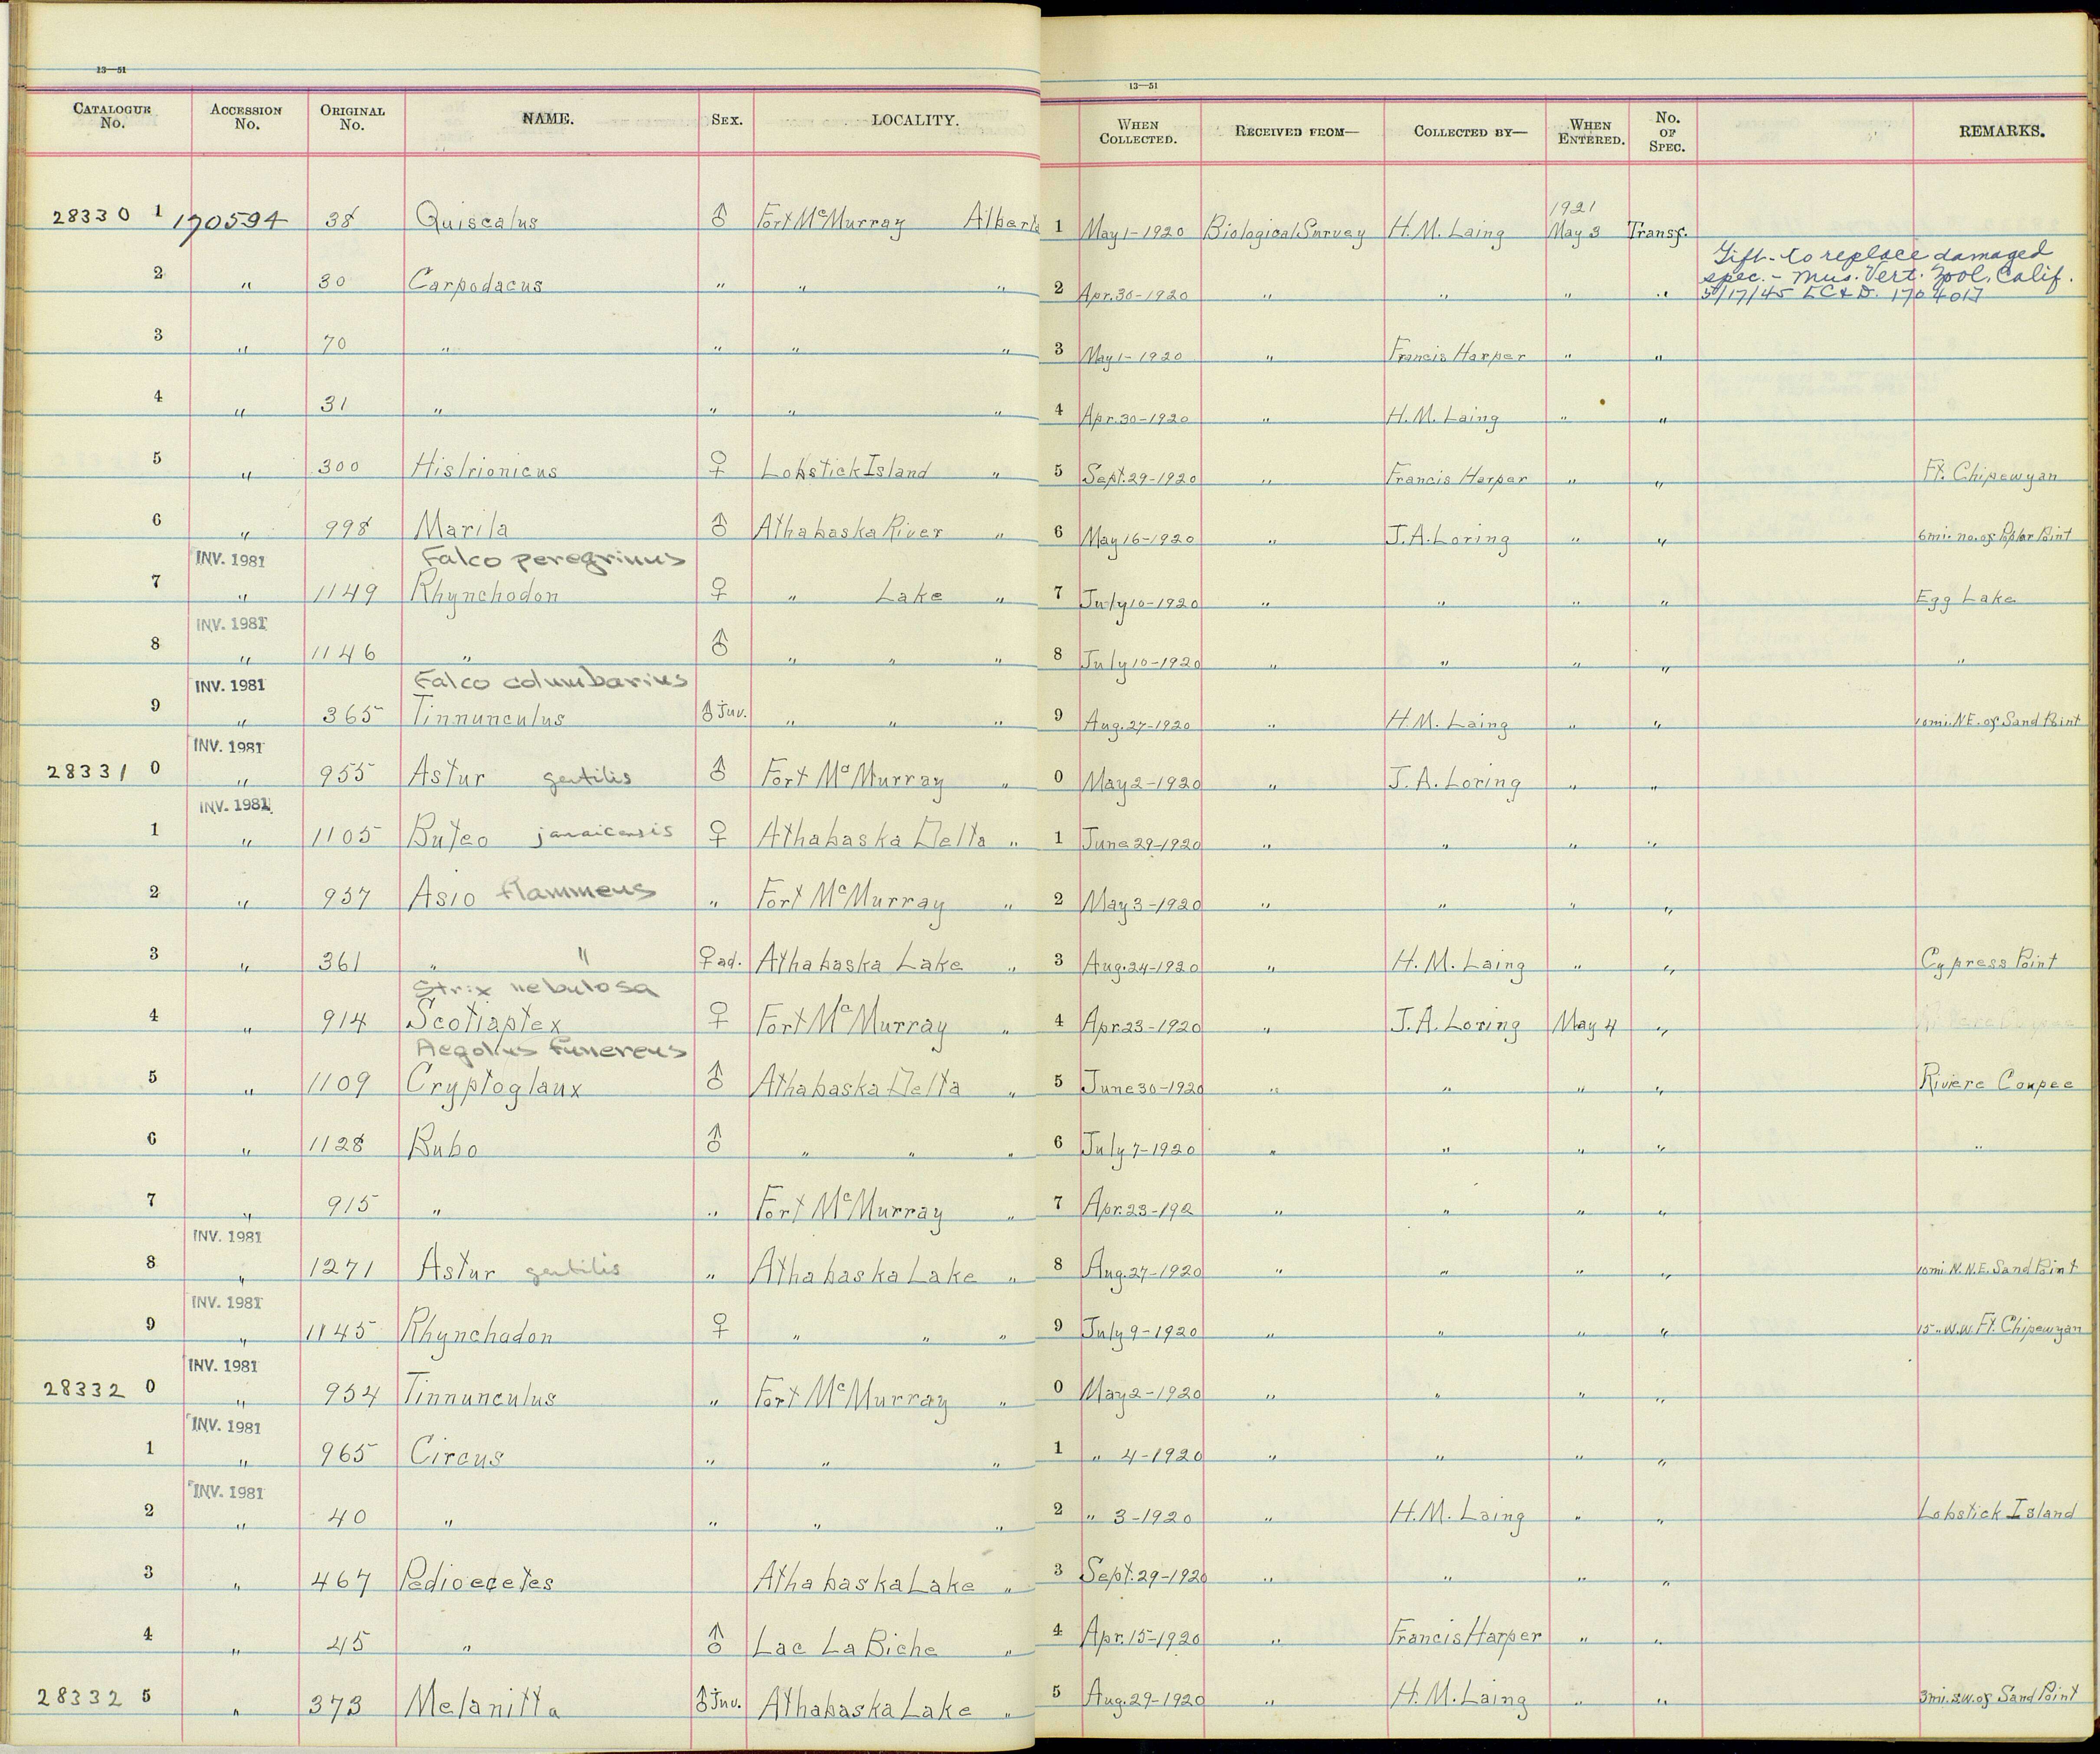 13—51
13—51
CATALOGUE No. ACCESSION No. ORIGINAL No. NAME. SEX. LOCALITY. WHEN COLLECTED. RECEIVED FROM— COLLECTED BY— WHEN ENTERED. No. OF SPEC. REMARKS.
1921
28330 1 170594 38 Quiscalus ♂ Fort McMurray Alberta 1 May 1-1920 Biological Survey H. M. Laing May 3 Transf.
Gift - to replace damaged
spec. - Mus. Vert. Zool. Calif.
5/17/45
2 " 30 Carpodacus " " " 2 Apr. 30-1920 " " " "
3 " 70 " " " " 3 May 1-1920 " Francis Harper " "
4 " 31 " " " " 4 Apr. 30-1920 " H. M. Laing " "
5 " 300 Histrionicus ♀ Lobstick Island " 5 Sept. 29-1920 " Francis Harper " " Ft. Chipewyan
6 " 998 Marila ♂ Athabaska River " 6 May 16-1920 " J. A. Loring " " 6 mi. no. of Poplar Point
INV. 1981 Falco peregrinus
7 " 1149 Rhynchodon ♀ " Lake " 7 July 10-1920 " " " " Egg Lake
INV. 1981
8 " 1146 " ♂ " " " 8 July 10-1920 " " " " "
INV. 1981 Falco columbarius
9 " 365 Tinnunculus ♂ Juv. " " " 9 Aug. 27-1920 " H. M. Laing " " 10 mi. NE. of Sand Point
INV. 1981
28331 0 " 955 Astur gentilis ♂ Fort McMurray " 0 May 2-1920 " J. A. Loring " "
INV. 1981
1 " 1105 Buteo jamaicensis ♀ Athabaska Delta " 1 June 29-1920 " " " "
2 " 957 Asio flammeus " Fort McMurray " 2 May 3-1920 " " " "
3 " 361 " " ♀ ad. Athabaska Lake " 3 Aug. 24-1920 " H. M. Laing " " Cypress Point
Strix nebulosa
4 " 914 Scotiaptex ♀ Fort McMurray " 4 Apr. 23-1920 " J. A. Loring May 4 "
Aegolius funereus
5 " 1109 Cryptoglaux ♂ Athabaska Delta " 5 June 30-1920 " " " " Rivere Coupee
6 " 1128 Bubo ♂ " " " 6 July 7-1920 " " " " "
7 " 915 " " Fort McMurray " 7 Apr. 23-192 " " " "
INV. 1981
8 " 1271 Astur gentilis " Athabaska Lake " 8 Aug. 27-1920 " " " " 10 mi. N.N.E. Sand Point
INV. 1981
9 " 1145 Rhynchodon ♀ " " " 9 July 9-1920 " " " " 15 " W.W. Ft. Chipewyan
INV. 1981
28332 0 " 954 Tinnunculus " Fort McMurray " 0 May 2-1920 " " " "
INV. 1981
1 " 965 Circus " " " 1 " 4-1920 " " " "
INV. 1981
2 " 40 " " " " 2 " 3-1920 " H. M. Laing " " Lobstick Island
3 " 467 Pedioecetes Athabaska Lake " 3 Sept. 29-1920 " " " "
4 " 45 " ♂ Lac La Biche " 4 Apr. 15-1920 " Francis Harper " "
28332 5 " 373 Melanitta ♂ Juv. Athabaska Lake " 5 Aug. 29-1920 " H. M. Laing " " 3 mi. SW. of Sand Point